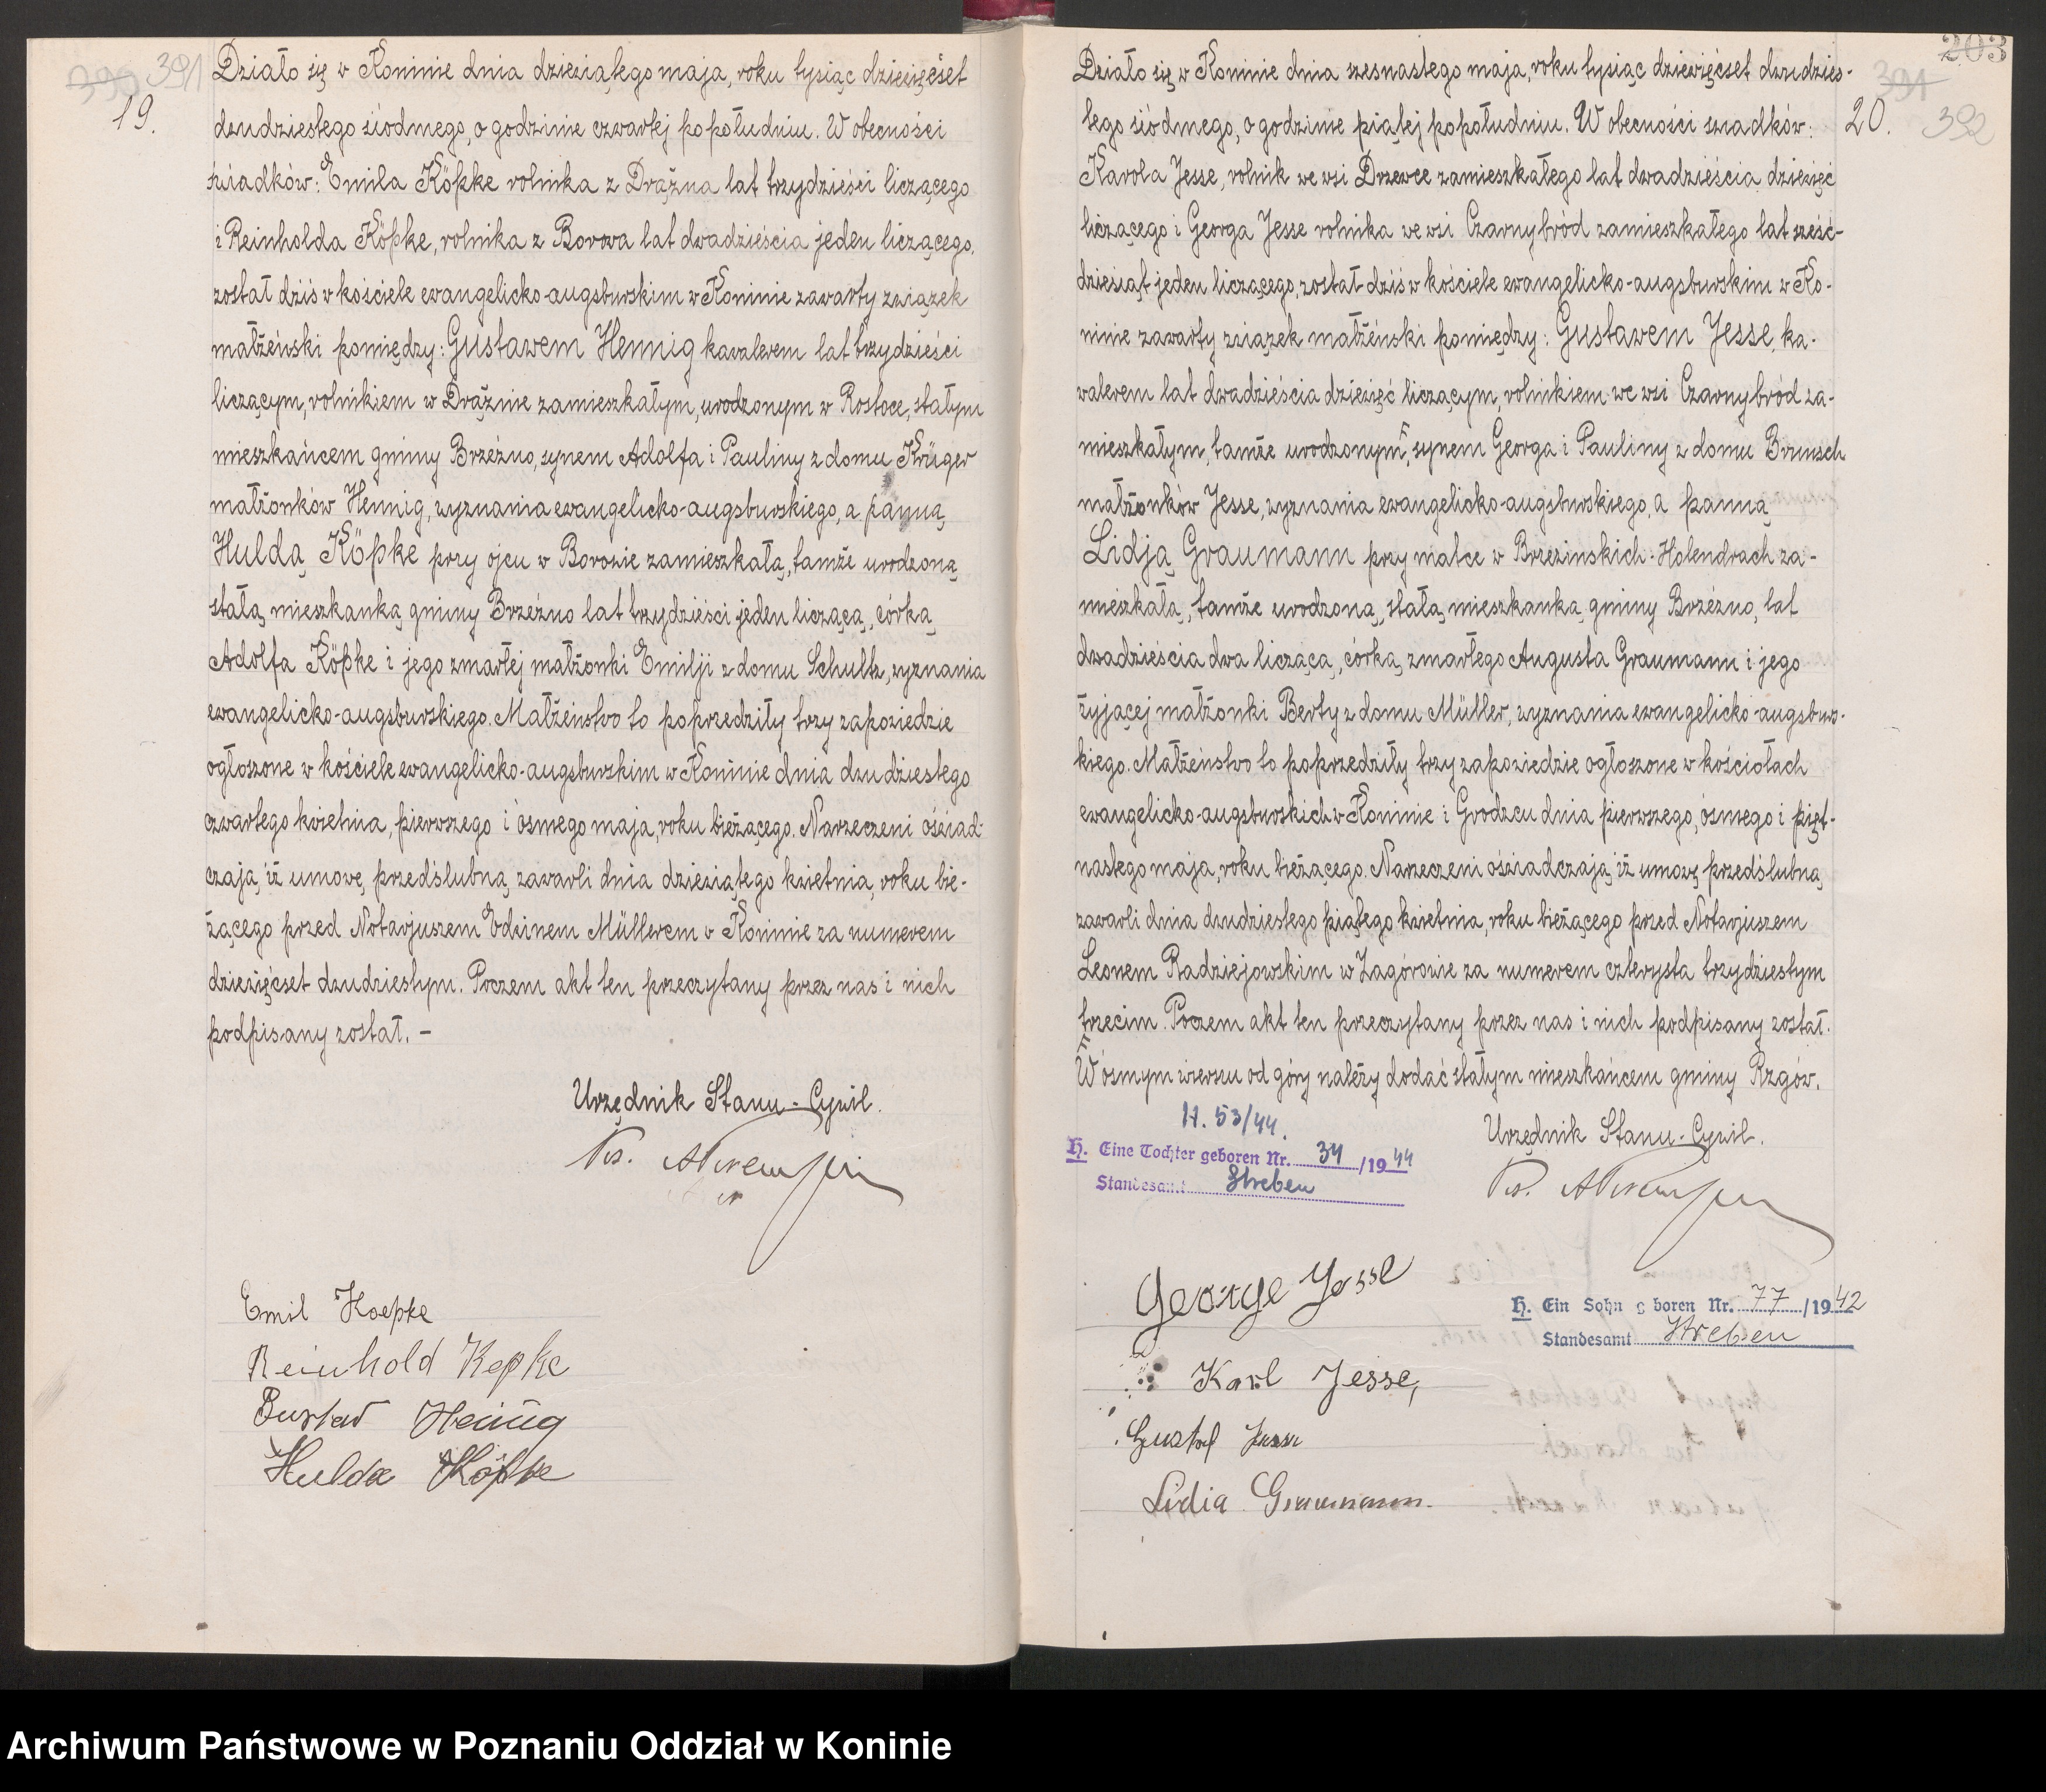 391
19.
Działo się w Koninie dnia dziesiątego maja, roku tysiąc dziewięćset
dwudziestego siódmego, o godzinie czwartej popołudniu. W obecności
świadków: Emila Köpke rolnika z Drążna lat trzydzieści liczącego
i Reinholda Köpke, rolnika z Borowa lat dwadzieścia jeden liczącego,
został dziś w kościele ewangelicko-augsburskim w Koninie zawarty związek
małżeński pomiędzy: Gustawem Hennig kawalerem lat trzydzieści
liczącym, rolnikiem w Drążnie zamieszkałym, urodzonym w Rostoce, stałym
mieszkańcem gminy Brzeźno, synem Adolfa i Pauliny z domu Krüger
małżonków Hennig, wyznania ewangelicko-augsburskiego, a panną
Huldą Köpke przy ojcu w Borowie zamieszkałą, tamże urodzoną
stałą mieszkanką gminy Brzeźno lat trzydzieści jeden liczącą, córką
Adolfa Köpke i jego zmarłej małżonki Emilji z domu Schultz, wyznania
ewangelicko-augsburskiego. Małżeństwo to poprzedziły trzy zapowiedzie
ogłoszone w kościele ewangelicko-augsburskim w Koninie dnia dwudziestego
czwartego kwietnia, pierwszego i ósmego maja, roku bieżącego. Narzeczeni oświad-
czają, iż umowę przedślubną zawarli dnia dziewiątego kwietnia, roku bie-
żącego przed Notarjuszem Edwinem Müllerem w Koninie za numerem
dziewięćset dwudziestym. Poczem akt ten przeczytany przez nas i nich
podpisany został. –
Urzędnik Stanu-Cywil.
Ks.
Emil Koepke
Reinhold Kepke
Gustav Hennig
Hulda Köpke
203
391
20.
392
Działo się w Koninie dnia szesnastego maja, roku tysiąc dziewięćset dwudzies-
tego siódmego, o godzinie piątej popołudniu. W obecności świadków:
Karola Jesse, rolnik we wsi Drzewce zamieszkałego lat dwadzieścia dziewięć
liczącego i Georga Jesse rolnika we wsi Czarnybród zamieszkałego lat sześć-
dziesiąt jeden liczącego, został dziś w kościele ewangelicko-augsburskim w Ko-
ninie zawarty związek małżeński pomiędzy: Gustawem Jesse, ka-
walerem lat dwadzieścia dziewięć liczącym, rolnikiem we wsi Czarnybród za-
mieszkałym, tamże urodzonym, synem Georga i Pauliny z domu Brunsch
małżonków Jesse, wyznania ewangelicko-augsburskiego, a panną
Lidją Graumann przy matce w Brzezinskich-Holendrach za-
mieszkałą, tamże urodzoną, stałą mieszkanką gminy Brzeźno, lat
dwadzieścia dwa liczącą, córką zmarłego Augusta Graumann i jego
żyjącej małżonki Berty z domu Müller, wyznania ewangelicko-augsburs-
kiego. Małżeństwo to poprzedziły trzy zapowiedzie ogłoszone w kościołach
ewangelicko-augsburskich w Koninie i Grodzcu dnia pierwszego, ósmego i pięt-
nastego maja, roku bieżącego. Narzeczeni oświadczają, iż umowę przedślubną
zawarli dnia dwudziestego piątego kwietnia, roku bieżącego przed Notarjuszem
Leonem Radziejowskim w Zagórowie za numerem czterysta trzydziestym
trzecim. Poczem akt ten przeczytany przez nas i nich podpisany został.
W ósmym wierszu od góry należy dodać stałym mieszkańcem gminy Rzgów.
H. 53/44.
H. Eine Tochter geboren Nr. 34 /1944
Standesamt Streben
Urzędnik Stanu-Cywil.
Ks.
George Jesse
H. Ein Sohn geboren Nr. 77 /1942
Standesamt Streben
Karl Jesse,
Gustaf Jesse
Lidia Graumann.
Archiwum Państwowe w Poznaniu Oddział w Koninie